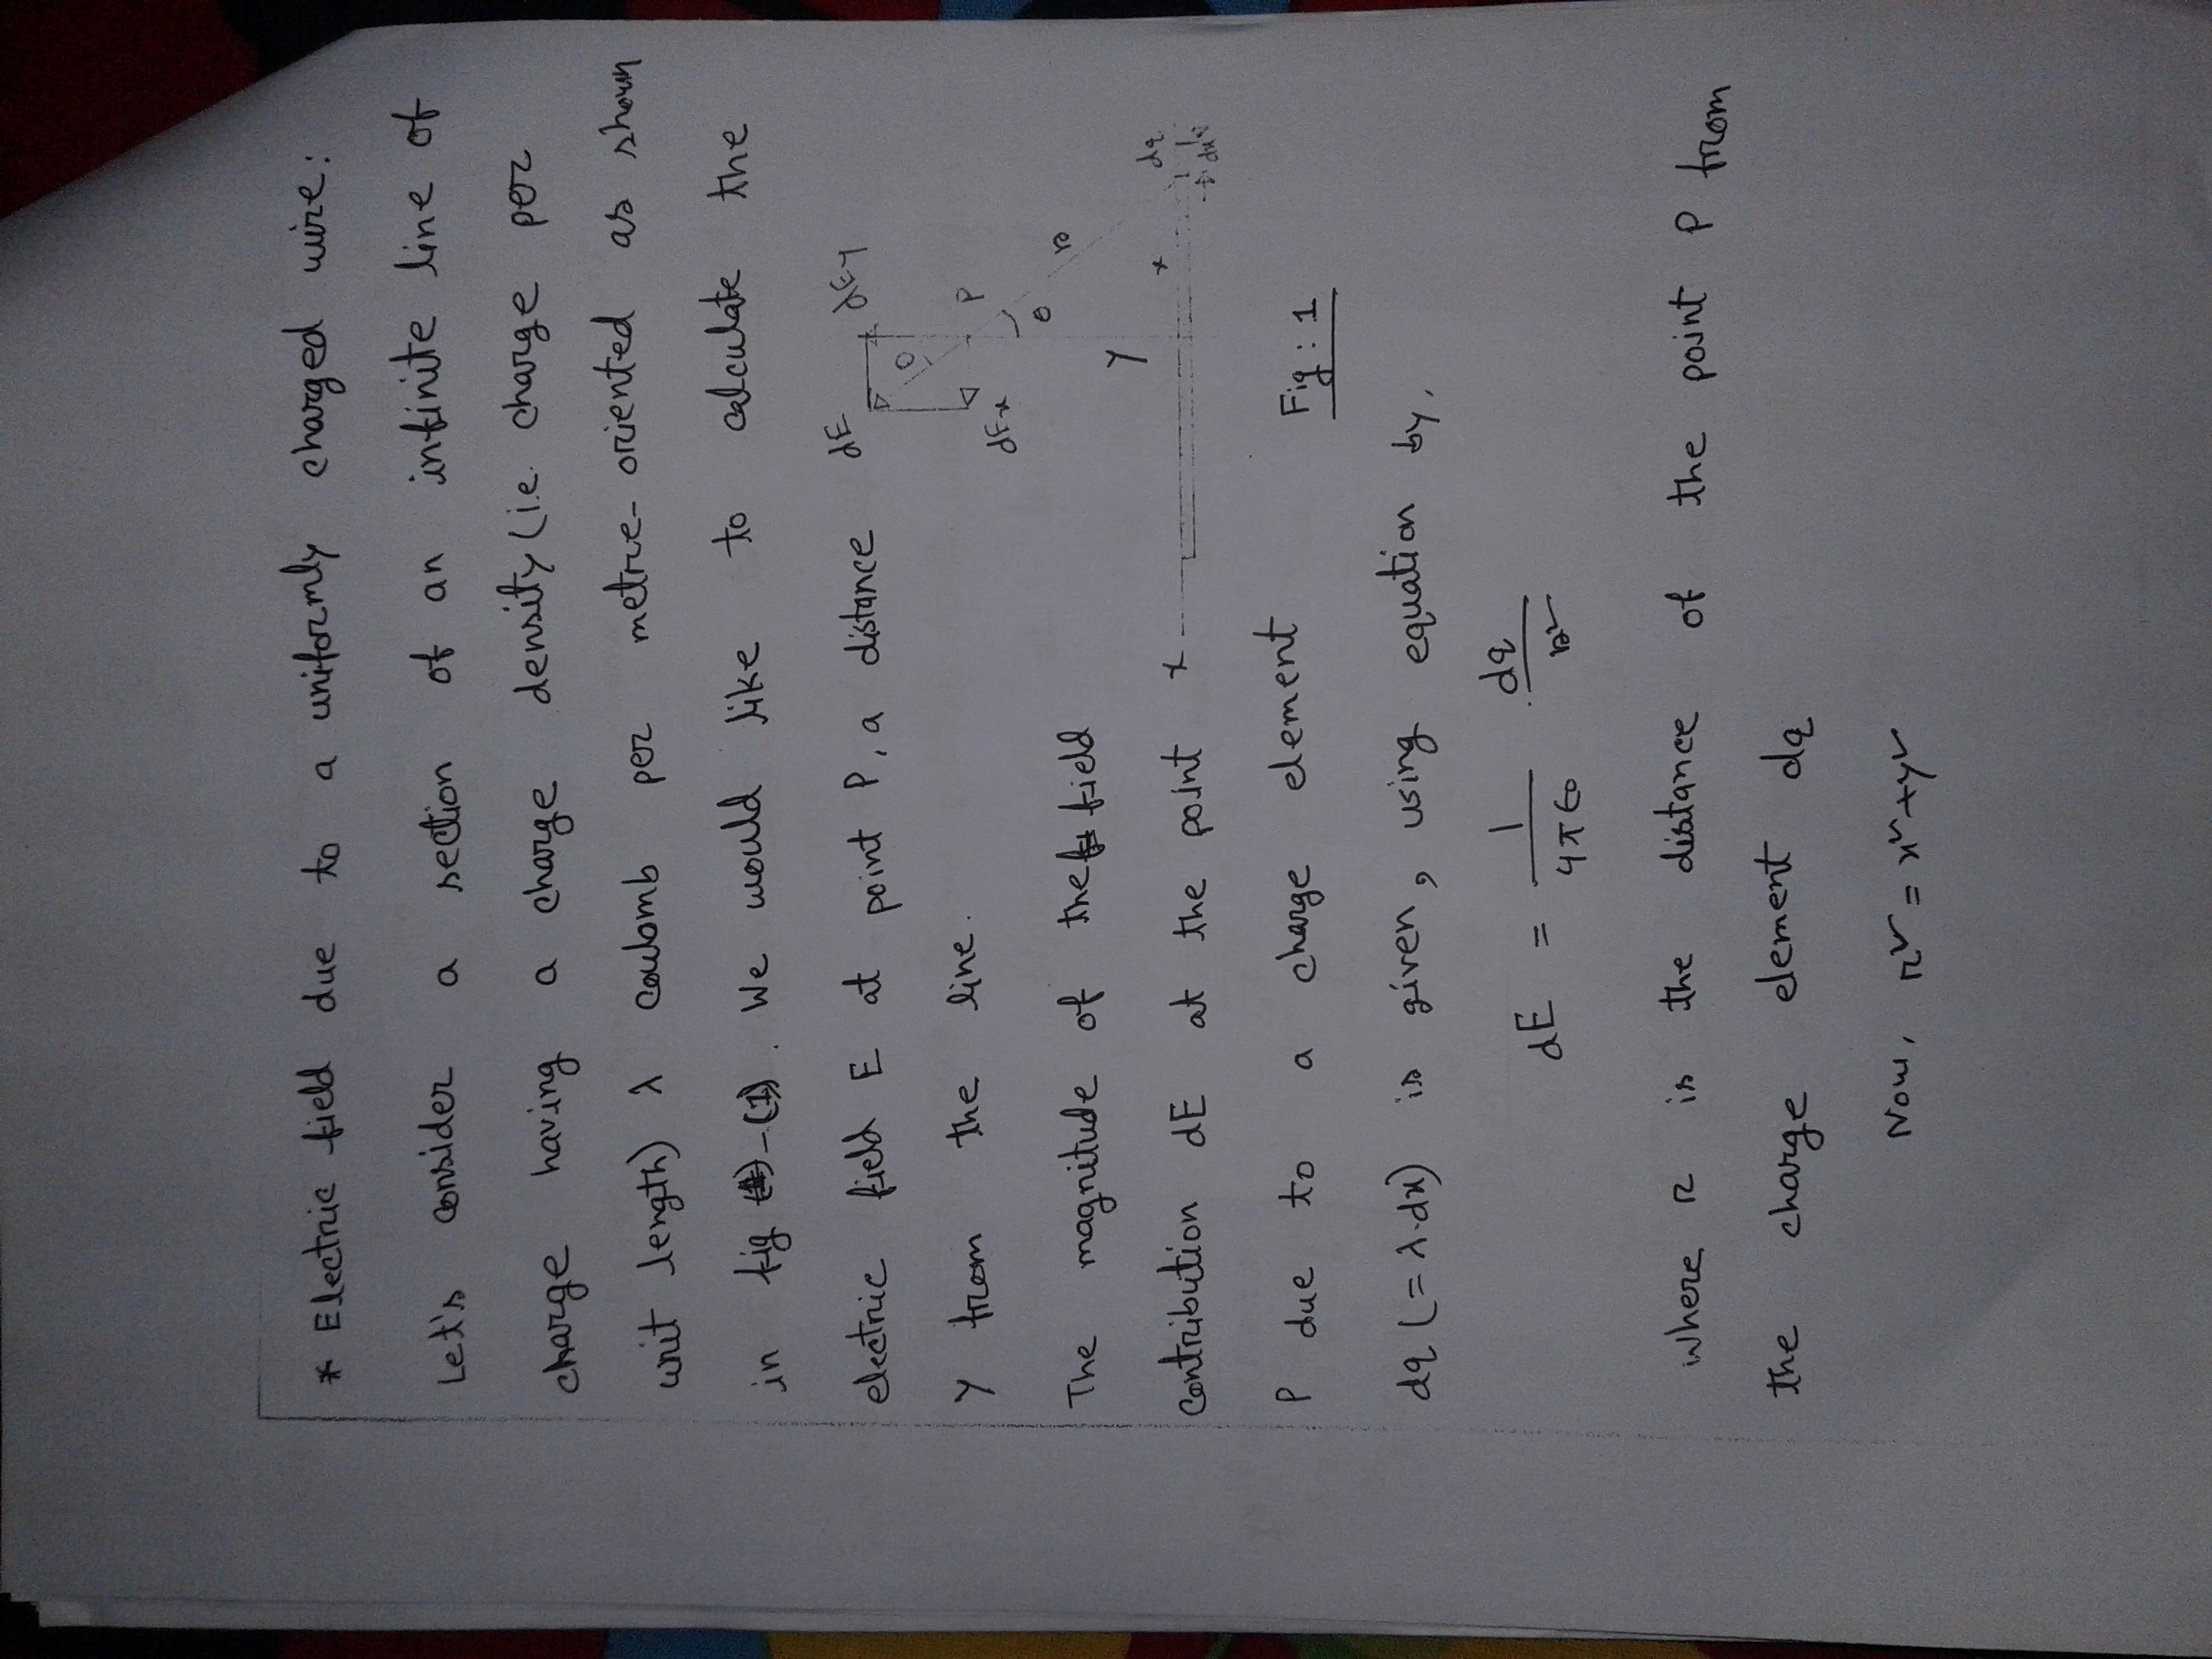 * Electric field due to a uniformly charged wire:
Let's consider a section of an infinite line of
charge having a charge density (i.e. charge per
unit length) λ coulomb per metre- oriented as shown
in fig -(1). We would like to calculate the
electric field E at point P, a distance
Y from the line.
dE dEy
θ
P
dEx
θ
r
The magnitude of the field
contribution dE at the point
Y
x x dq
dx
P due to a charge element
Fig : 1
dq (= λ·dx) is given, using equation by,
dE = 1/4πϵ0 · dq/r²
where r is the distance of the point P from
the charge element dq
Now, r² = x²+y²